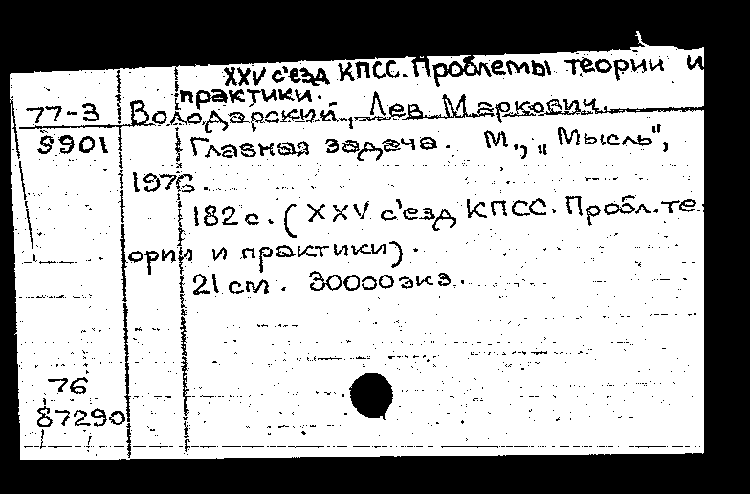 XXV с'езд КПСС. Проблемы теории и
практики.
77-3 Володарский, Лев Маркович.
9901 Главная задача. М., „Мысль",
1976.
182 с. (XXV с'езд КПСС. Пробл. те-
ории и практики).
21 см. 30000 экз.
76
87290